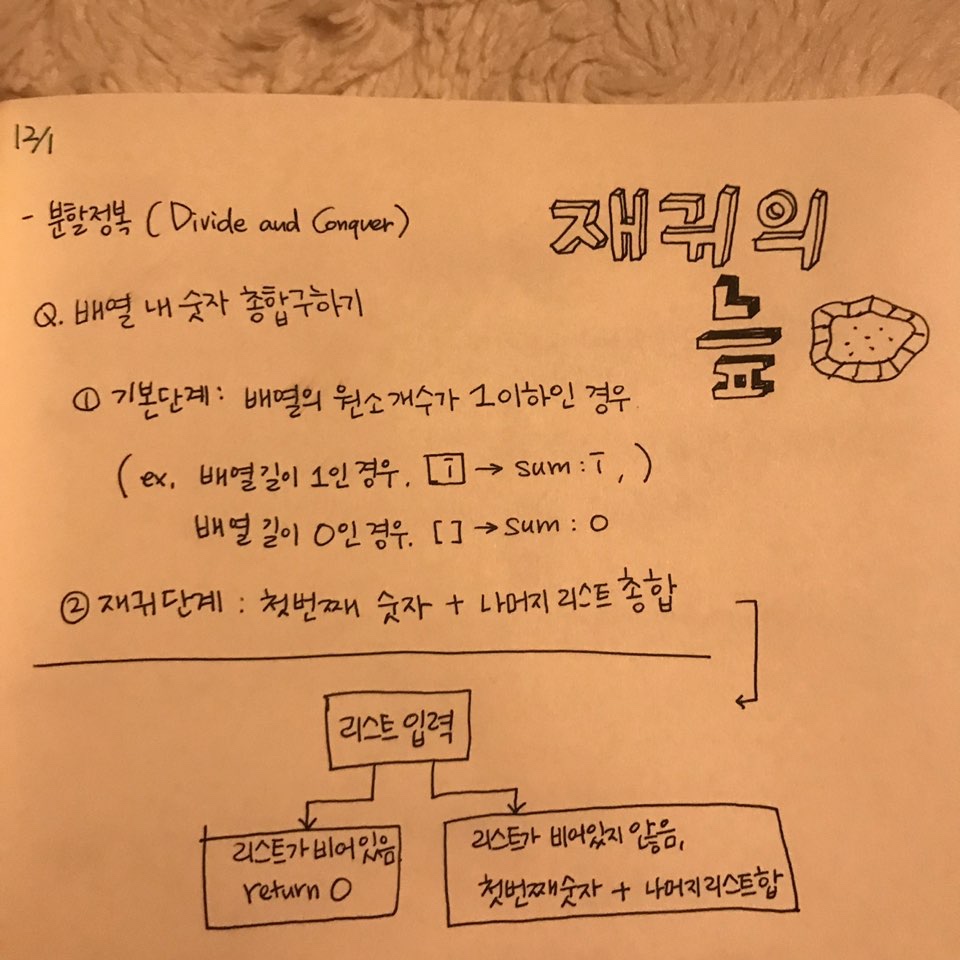 12/1
- 분할정복 (Divide and Conquer)
재귀의
늪
Q. 배열 내 숫자 총합구하기
① 기본단계: 배열의 원소개수가 1이하인 경우
(ex. 배열길이 1인 경우. 7 → sum: 7, )
배열 길이 0인 경우. [] → sum: 0
② 재귀단계: 첫번째 숫자 + 나머지 리스트 총합
리스트 입력
리스트가 비어있음
return 0
리스트가 비어있지 않음,
첫번째숫자 + 나머지리스트합